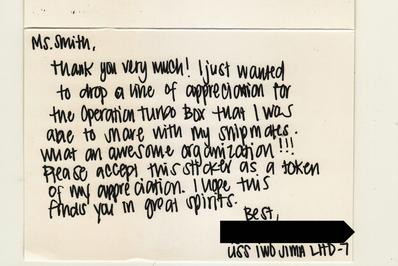 Ms. Smith,
Thank you very much! I just wanted
to drop a line of appreciation for
the Operation Turbo Box that I was
able to share with my shipmates.
What an awesome organization!!!
Please accept this sticker as a token
of my appreciation. I hope this
finds you in great spirits.
Best,
USS IWO JIMA LHD-7